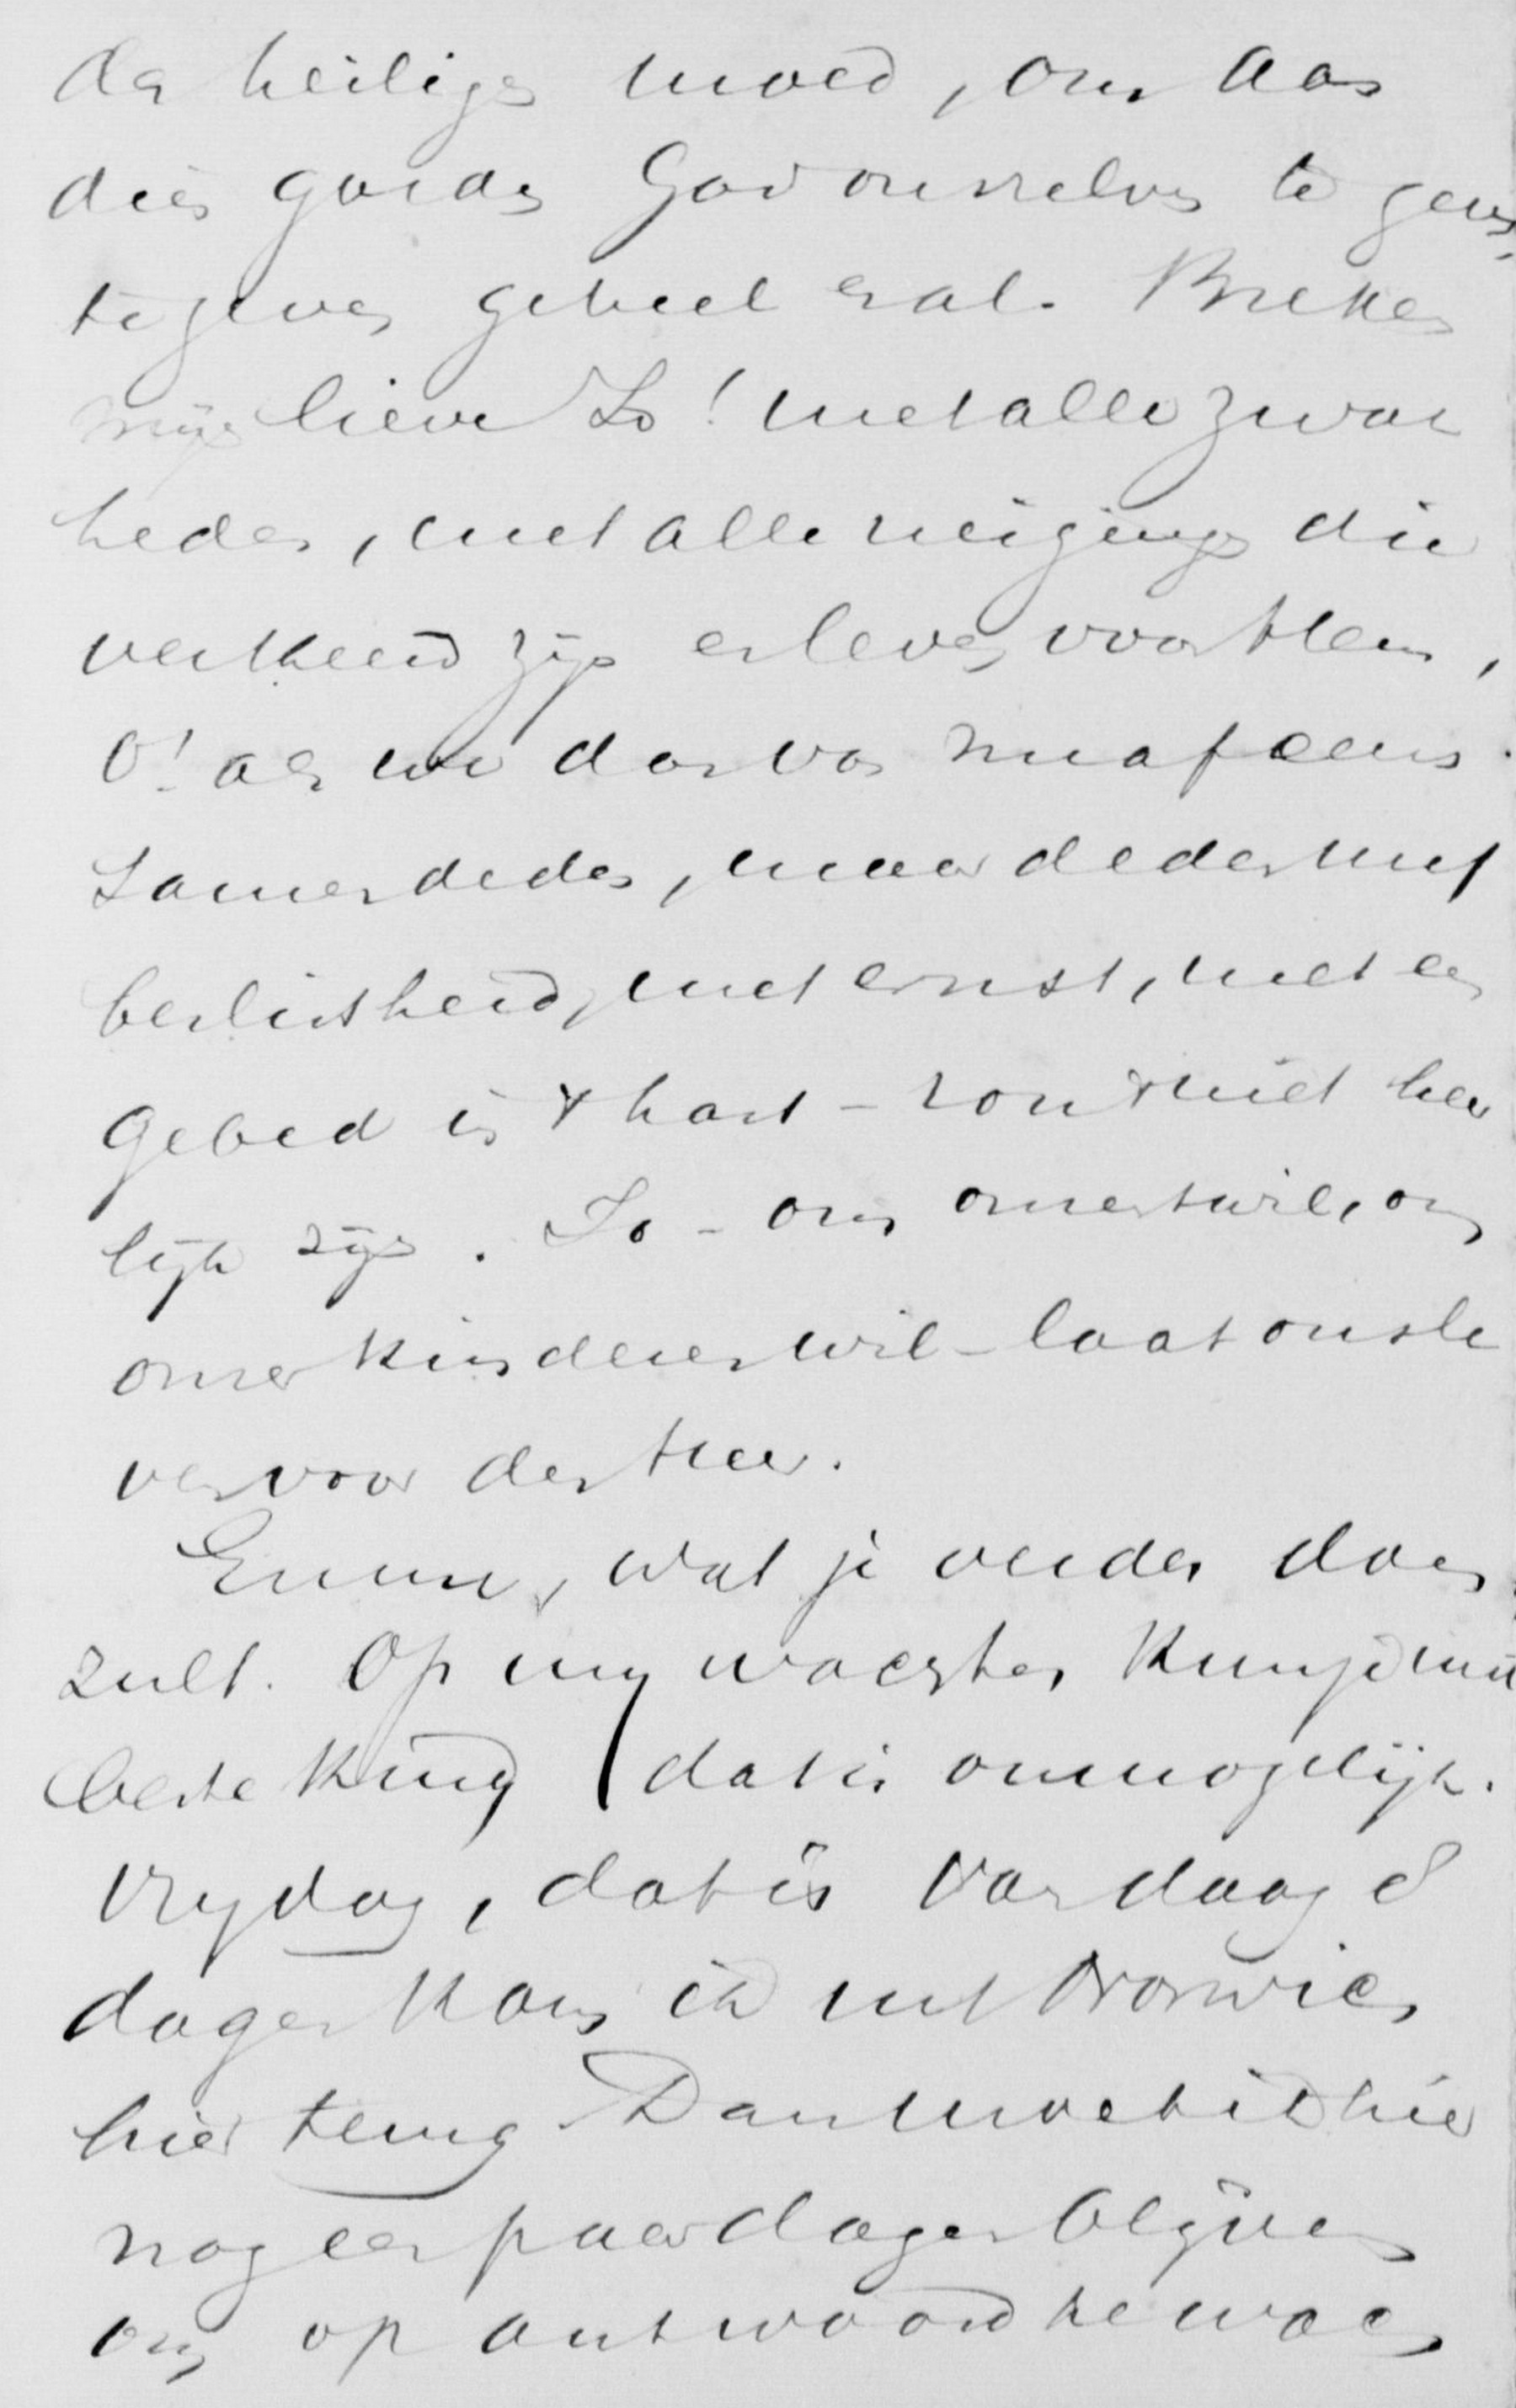 den heiligen moed, om aan
dien goeden God onszelven te geven,
te geven geheel en al. Breken
mijn lieve Jo! met alle zwar
heden, met alle neigingen die
verkeerd zijn en leven voor Hem,
O! als we dan van nu af eens
samen deden, maar deden met
beslistheid, met ernst, met een
gebed in 't hart – zou 't niet heer
lijk zijn. Jo – om onzentwil, om
onzer kinderen wil – laat ons le
ven voor den Heer.
En nu, wat je verder doen
zult. Op mij wachten kun je niet
beste kind dat is onmogelijk.
Vrydag, dat is van daag 8
dagen kom ik uit
hier terug. Dan moet ik hier
nog een paar dagen blijven
om op antwoord te wach